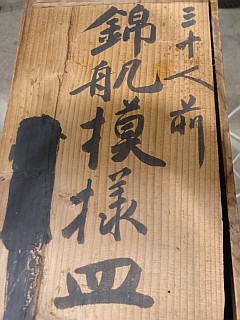 三十人前
錦帆模様皿